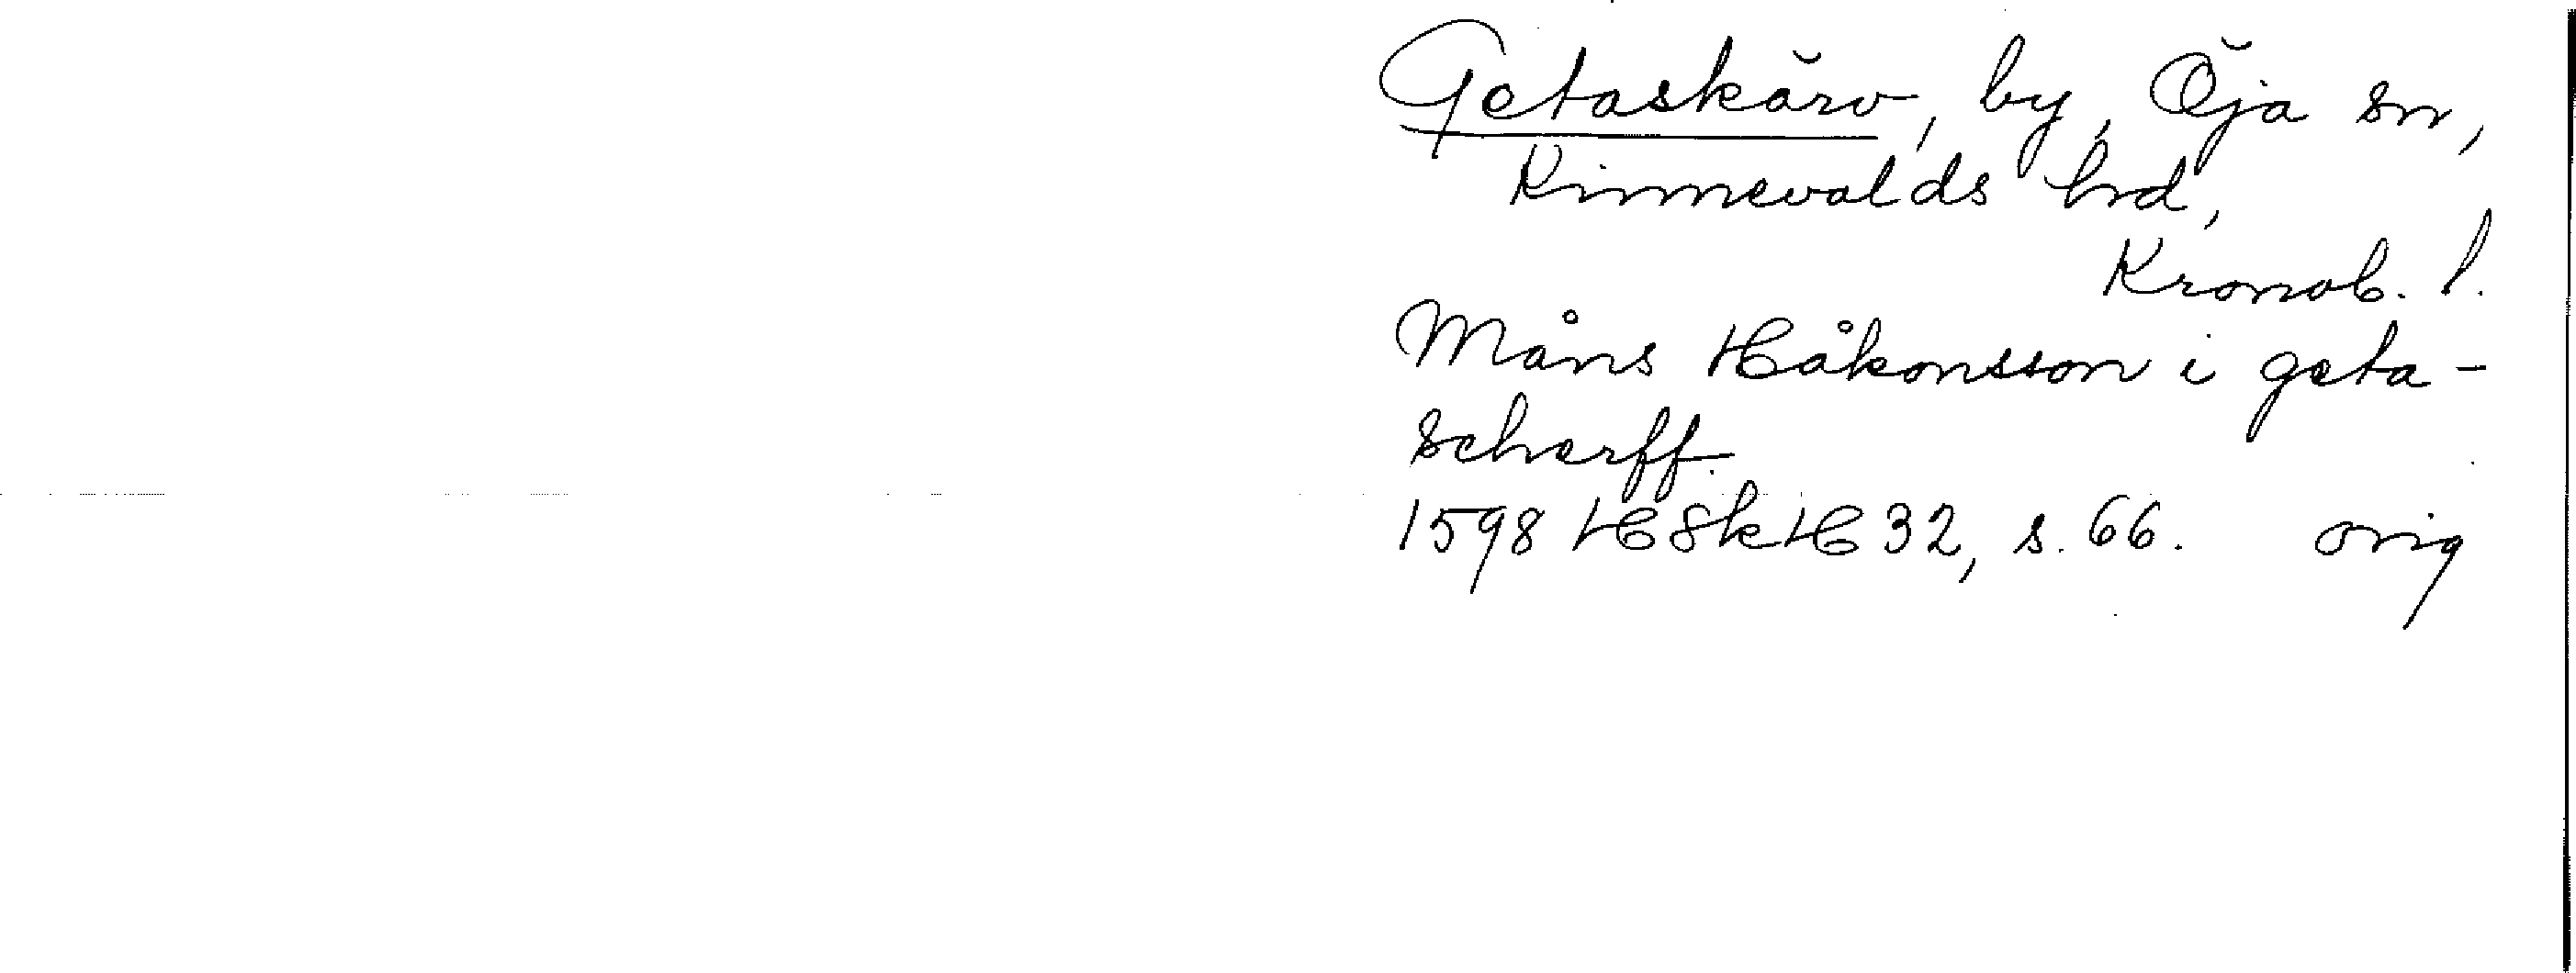 Getaskärv, by, Öja sn,
Kinnevalds hrd,
Kronob. l.
Måns Håkonsson i geta-
scherff.
1598 HSkH 32, s. 66. orig